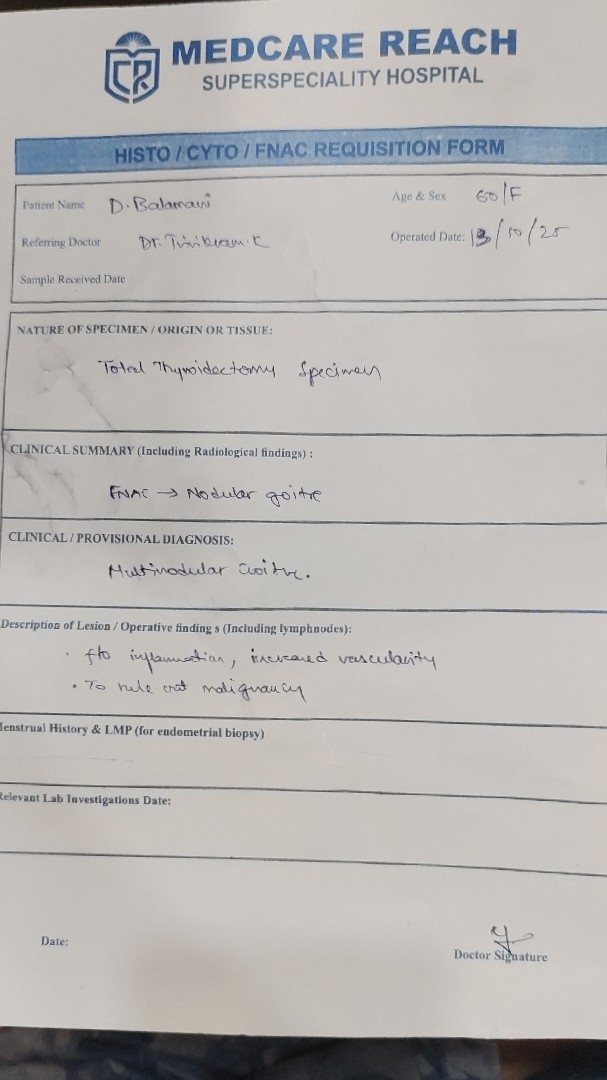 CR
MEDCARE REACH
SUPERSPECIALITY HOSPITAL
HISTO / CYTO / FNAC REQUISITION FORM
Patient Name D. Balamani Age & Sex 60/F
Referring Doctor Dr. Trivikram. K Operated Date: 13/10/25
Sample Received Date
NATURE OF SPECIMEN / ORIGIN OR TISSUE:
Total Thyroidectomy Specimen
CLINICAL SUMMARY (Including Radiological findings) :
FNAC → Nodular goitre
CLINICAL / PROVISIONAL DIAGNOSIS:
Multinodular Goitre.
Description of Lesion / Operative finding s (Including lymphnodes):
• f/o inflammation, increased vascularity
• To rule out malignancy
Menstrual History & LMP (for endometrial biopsy)
Relevant Lab Investigations Date:
Date:
Doctor Signature